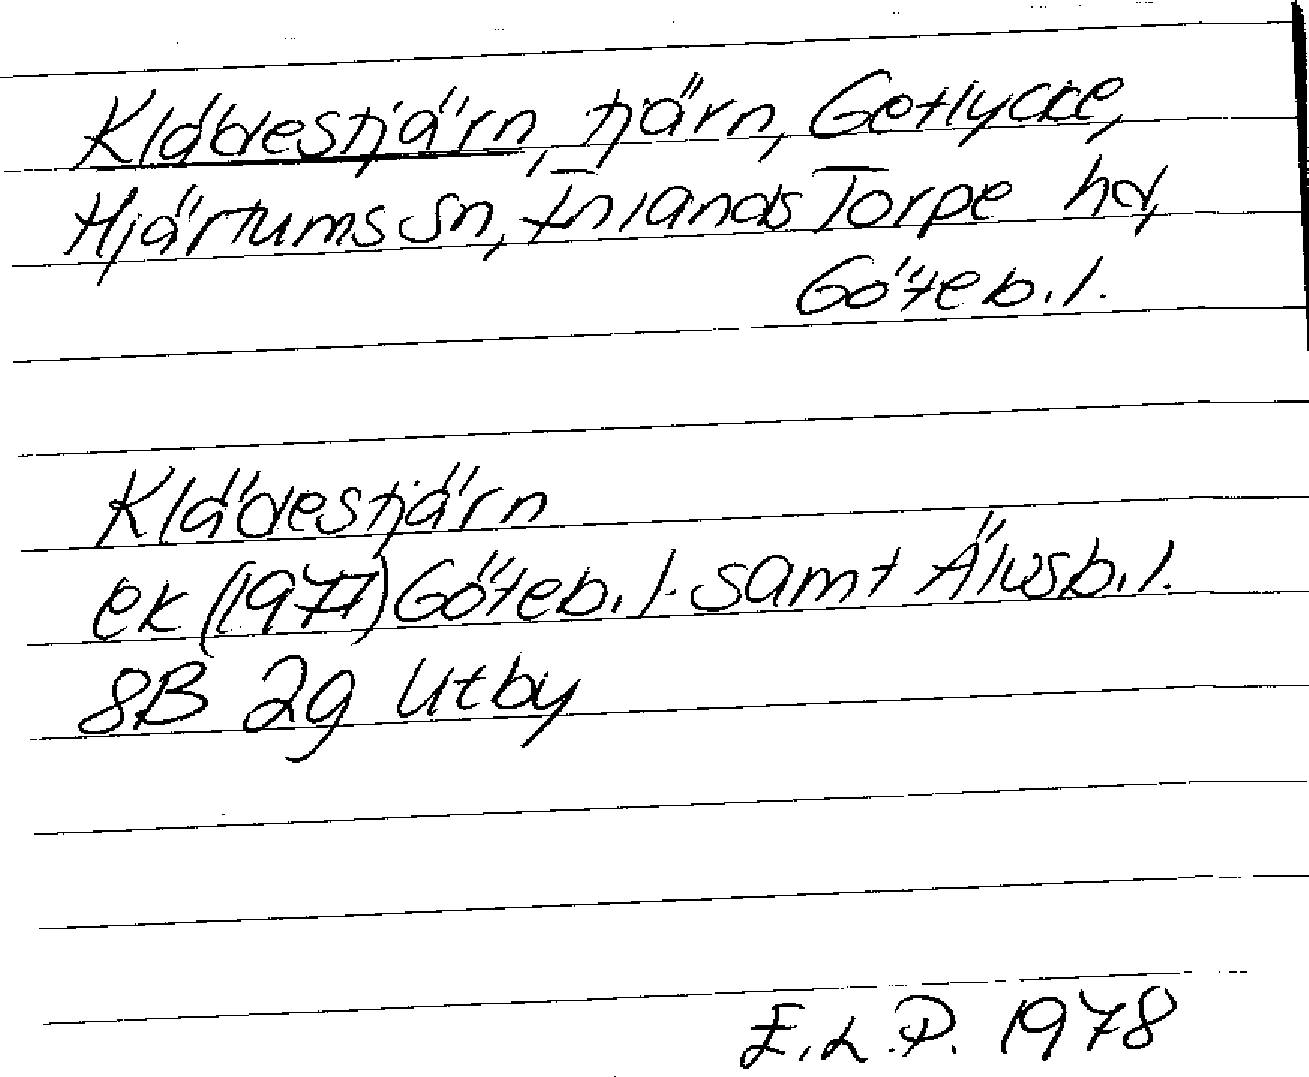 Klädestjärn, tjärn, Getlycke,
Hjärtums sn, Inlands Torpe hd,
Göteb. l.
Klädestjärn
ek (1977) Göteb. l. samt Älvsb. l.
8B 2g Utby
E.L.P. 1978